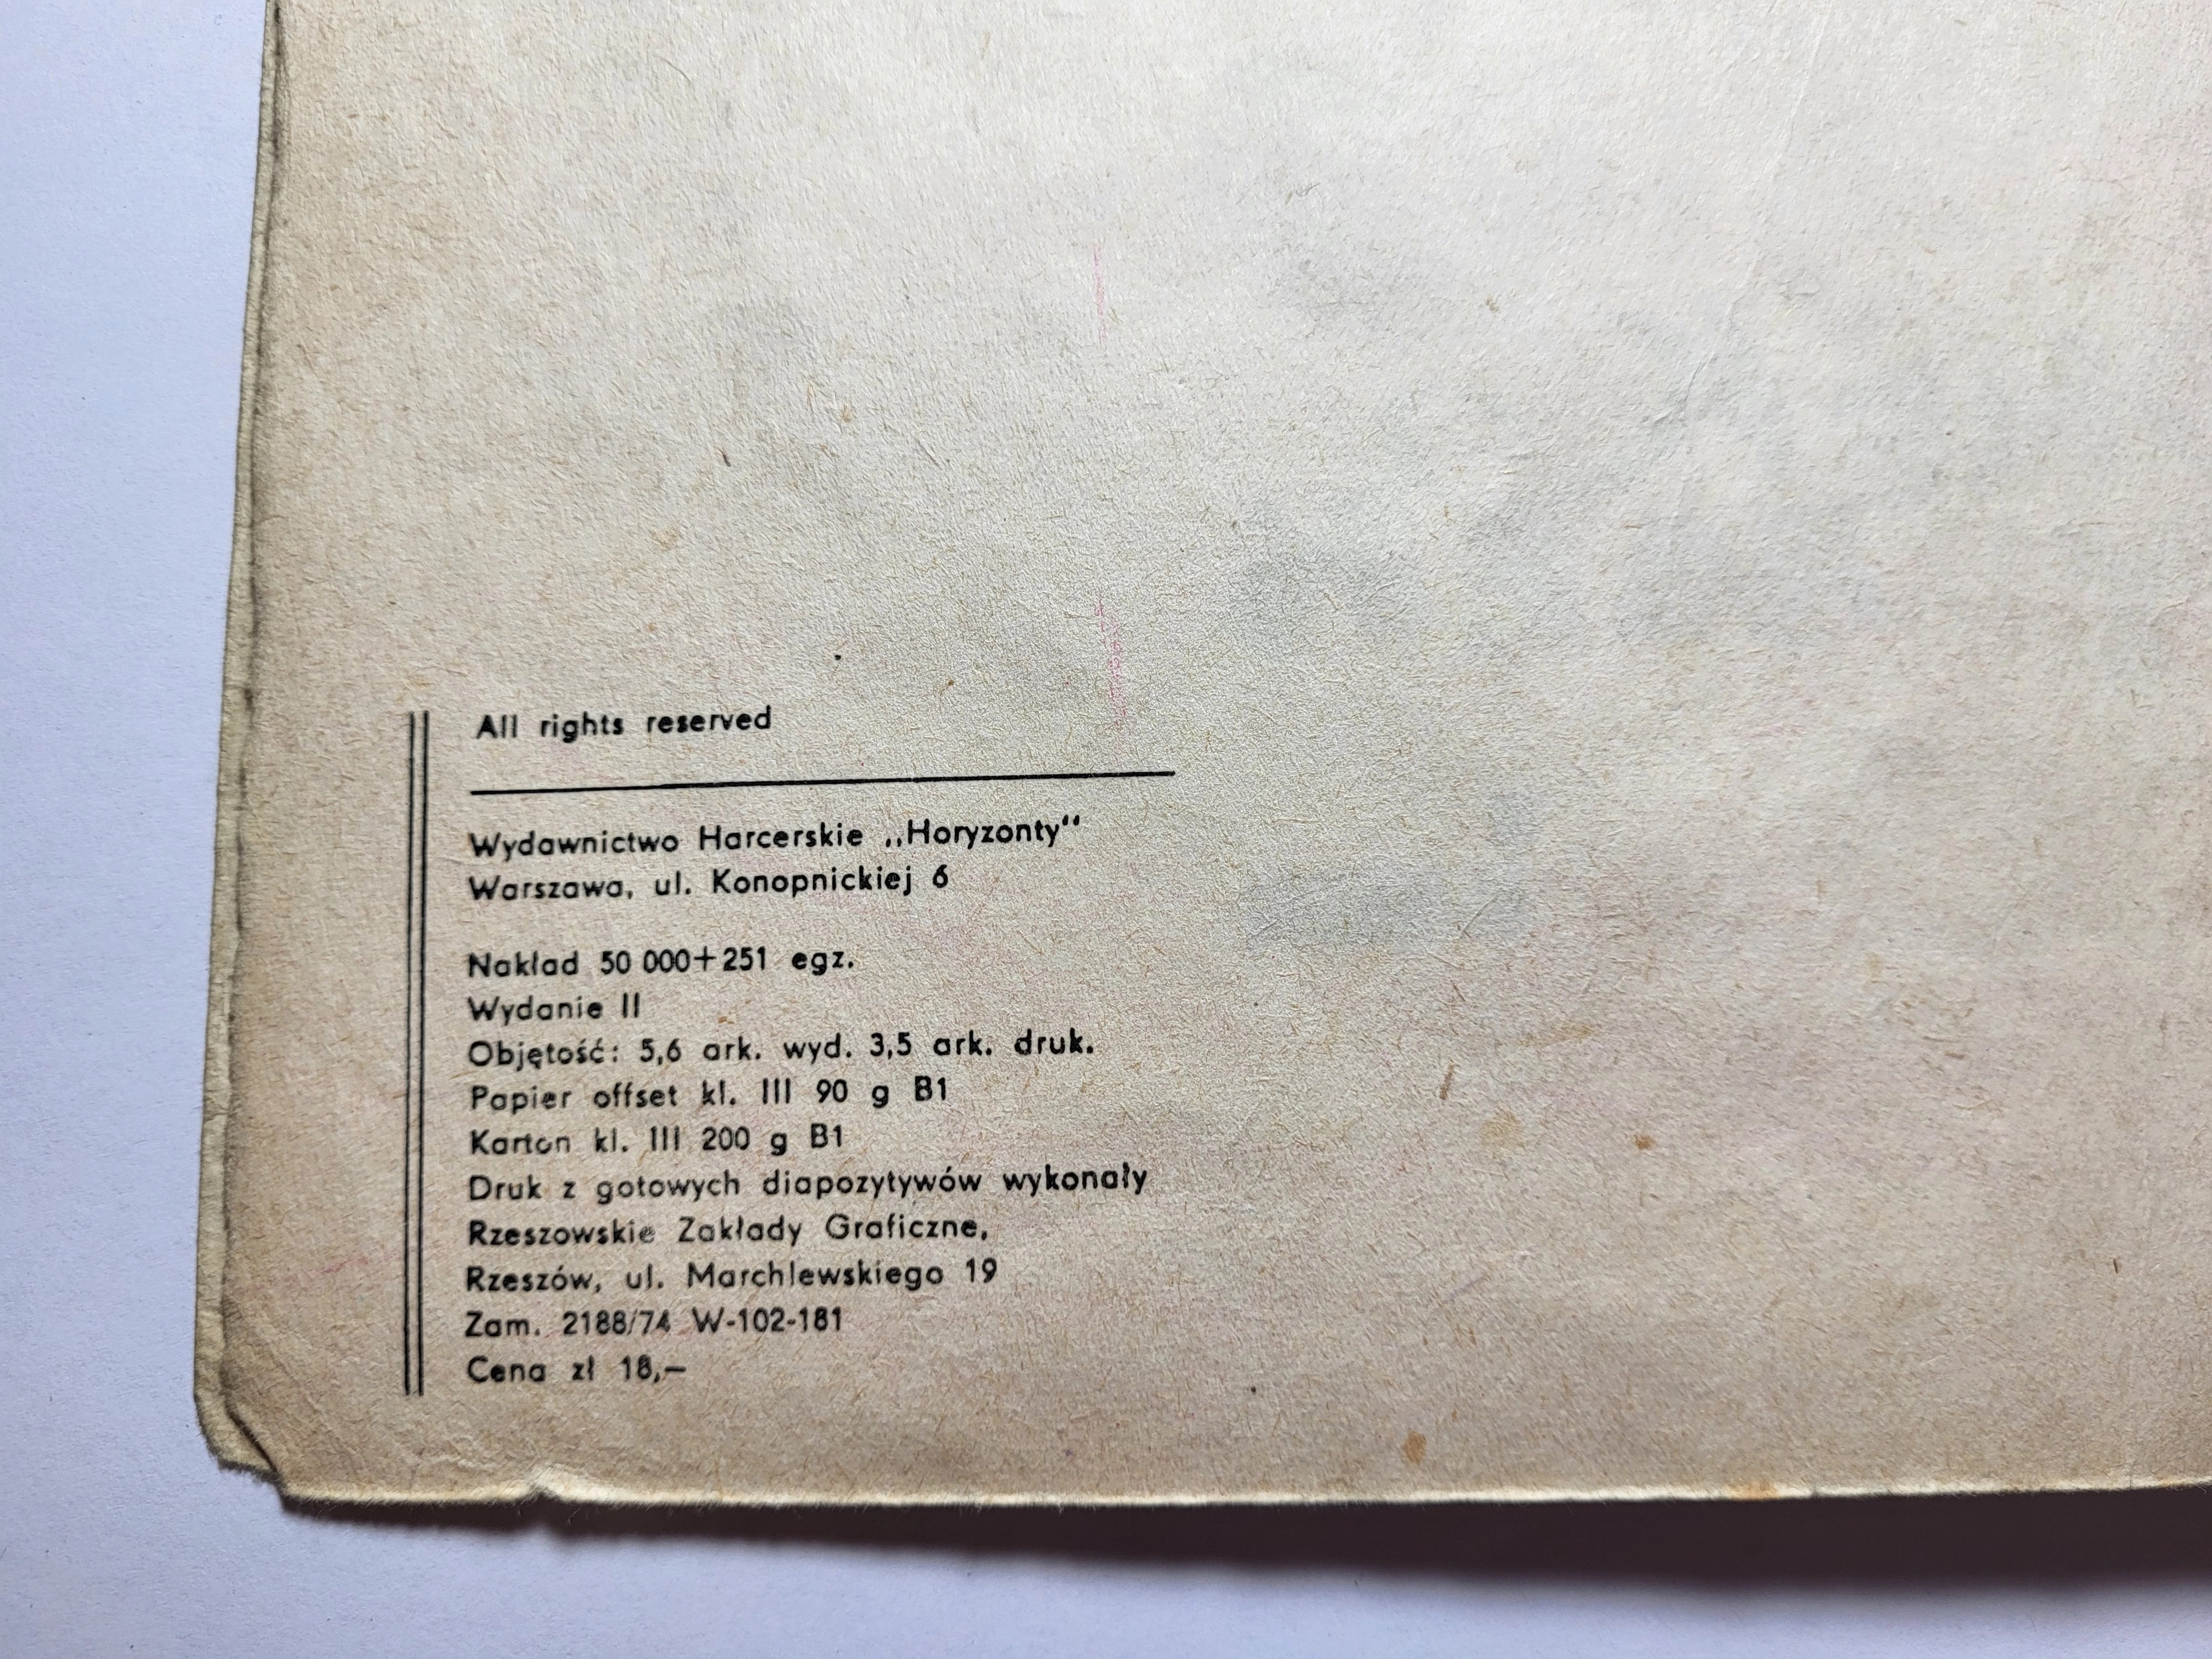 All rights reserved
Wydawnictwo Harcerskie ,,Horyzonty“
Warszawa, ul. Konopnickiej 6
Nakład 50 000+251 egz.
Wydanie II
Objętość: 5,6 ark. wyd. 3,5 ark. druk.
Papier offset kl. III 90 g B1
Karton kl. III 200 g B1
Druk z gotowych diapozytywów wykonały
Rzeszowskie Zakłady Graficzne,
Rzeszów, ul. Marchlewskiego 19
Zam. 2188/74 W-102-181
Cena zł 18,—